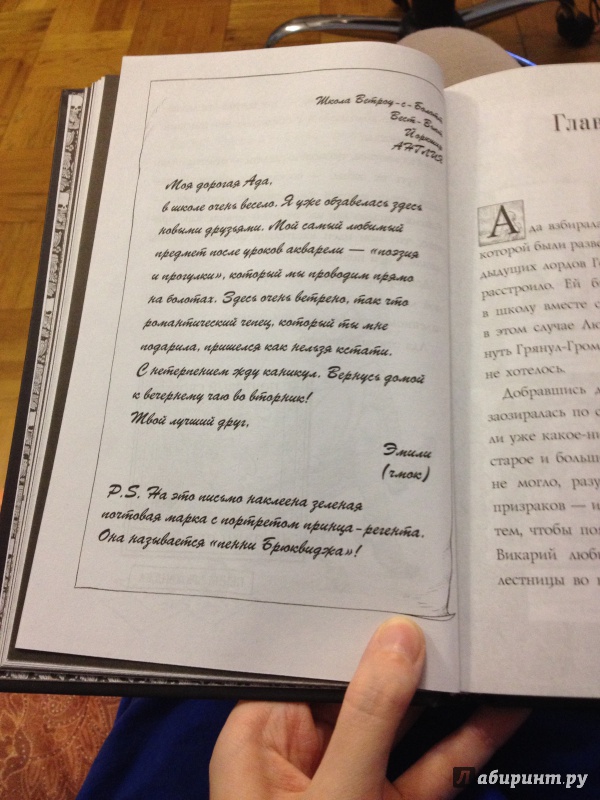 Школа Ветроу-с-Болота,
Вест-
АНГЛИЯ
Моя дорогая Ада,
в школе очень весело. Я уже обзавелась здесь
новыми друзьями. Мой самый любимый
предмет после уроков акварели — «поэзия
и прогулки», который мы проводим прямо
на болотах. Здесь очень ветрено, так что
романтический чепец, который ты мне
подарила, пришелся как нельзя кстати.
С нетерпением жду каникул. Вернусь домой
к вечернему чаю во вторник!
Твой лучший друг,
Эмили
(чмок)
P.S. На это письмо наклеена зеленая
почтовая марка с портретом принца-регента.
Она называется «пенни Брюквиджа»!
Глав
Ада взбирала
которой были разве
дыдущих лордов Г
расстроило. Ей б
в школу вместе с
в этом случае Лю
нуть Грянул-Гром
не хотелось.
Добравшись д
заозиралась по с
ли уже какое-ни
старое и больш
не могло, разу
призраков — и
тем, чтобы по
Викарий люби
лестницы во в
лабиринт.ру